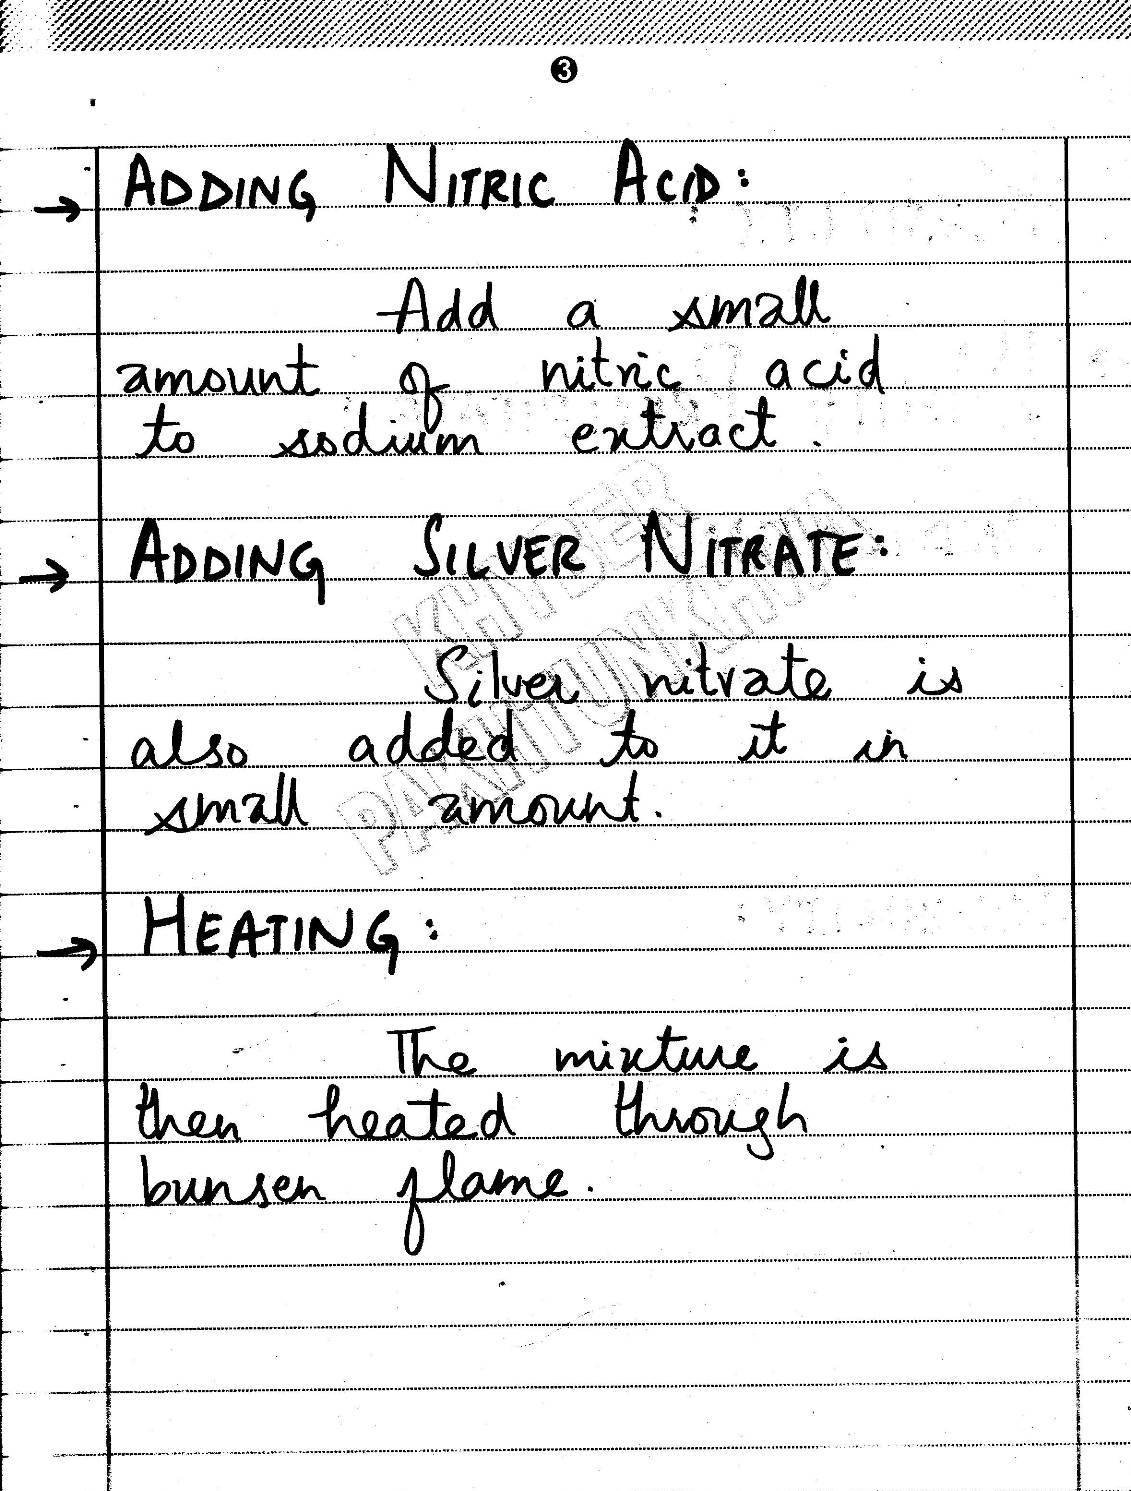 3
→ ADDING NITRIC ACID:
Add a small
amount of nitric acid
to sodium extract.
→ ADDING SILVER NITRATE:
Silver nitrate is
also added to it in
small amount.
→ HEATING:
The mixture is
then heated through
bunsen flame.
KHYBER
PAKHTUNKHWA